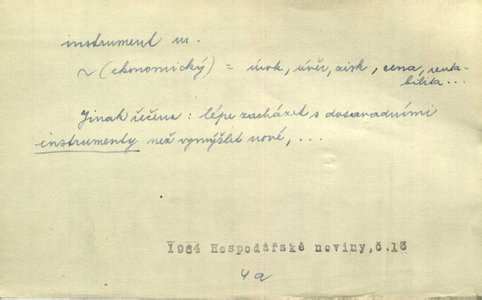 instrument m.
~ (ekonomický) = úrok, úvěr, zisk, cena, renta-
bilita...
Jinak řečeno: lépe zacházet s dosavadními
instrumenty než vymýšlet nové, ...
1964 Hospodářské noviny,č.13
4a